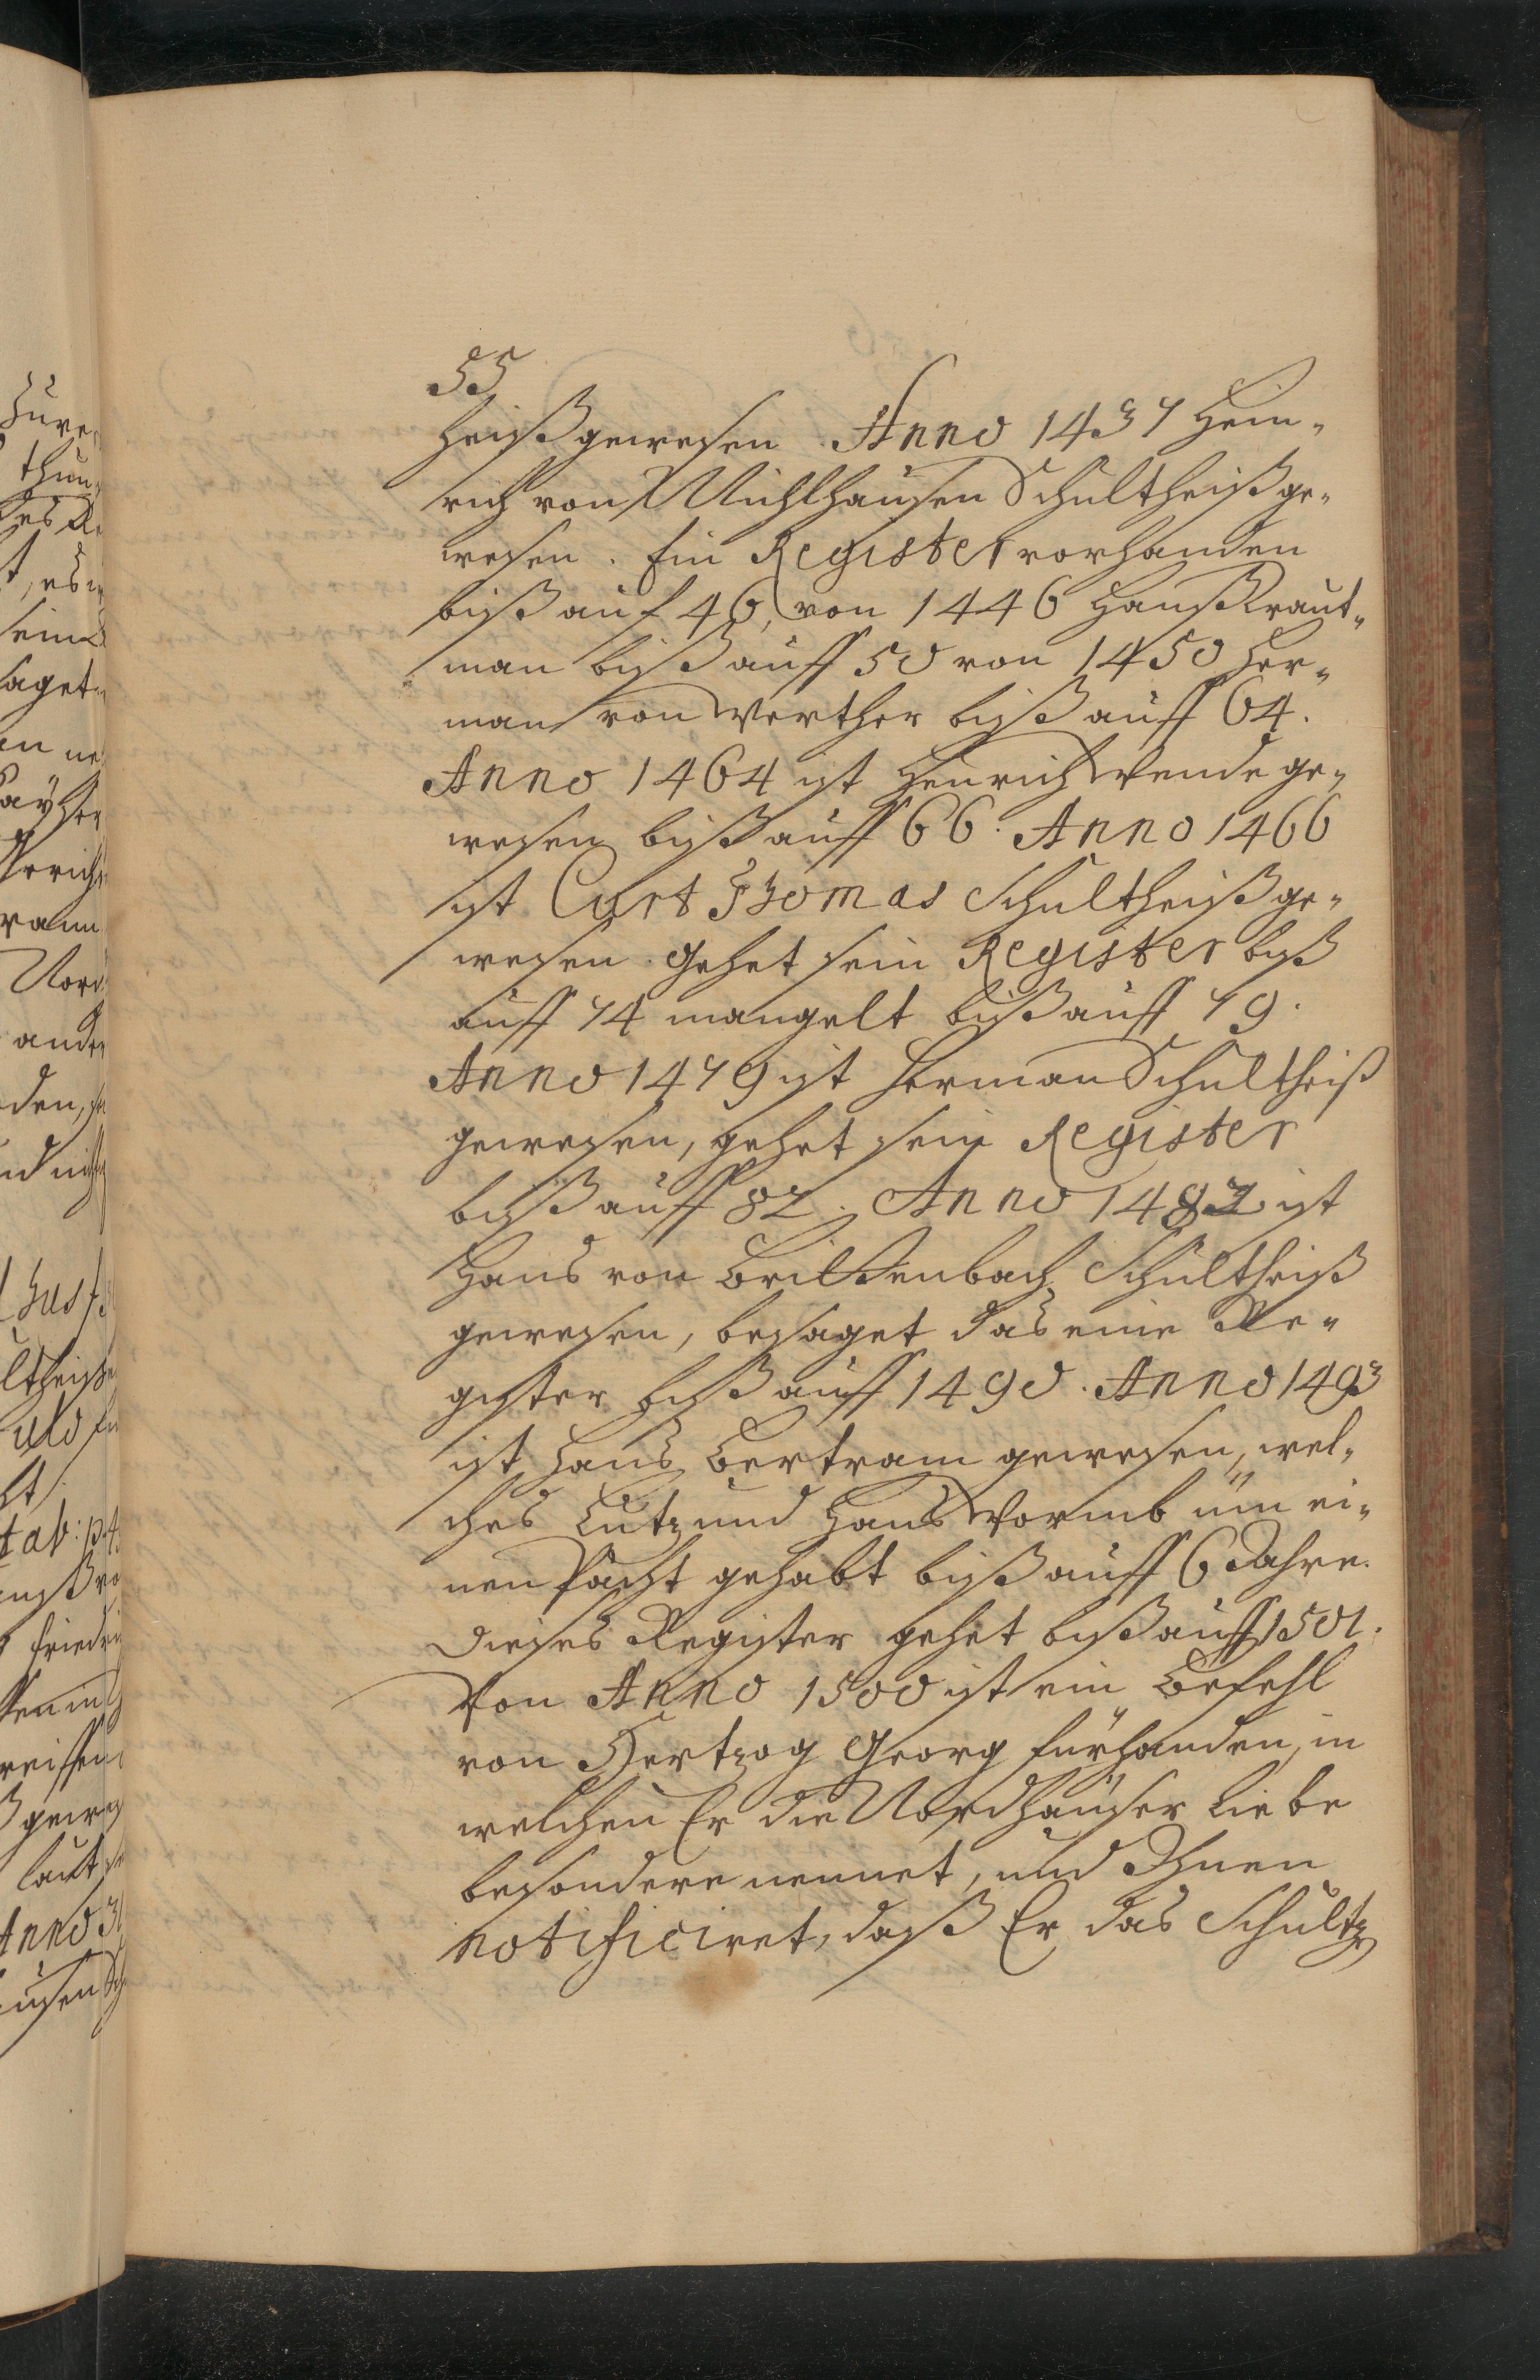 55
heiß gewesen. Anno 1437 Hein„
rich von Mühlhausen Schultheiß ge„
wesen. Ein Register vorhanden
biß auf 46, von 1446 Hanß Kraut„
man biß auff 50 von 1450 Her„
man von Werther biß auff 64.
Anno 1464 ist Heinrich Wende ge„
wesen biß auff 66. Anno 1466
ist Curt Thomas Schultheiß ge„
wesen gehet sein Register biß
auff 74 mangelt biß auff 79.
Anno 1479 ist Herman Schultheiß
gewesen, gehet sein Register
biß auff 82. Anno 1482 ist
Hans von Schultheiß
gewesen, besaget das eine Re„
gister biß auff 1490. Anno 1493
ist Hans Bertram gewesen, wel„
ches Lutz und Hans Wormb üm ei„
nen Pacht gehabt biß auff 6 Jahre.
Dieses Register gehet biß auff 1501.
Von Anno 1500 ist ein Befehl
von Hertzog Georg fürhanden, in
welchen Er die Nordhäuser Liebe
besondere nennet, und Ihnen
notificiret, daß Er das Schultz